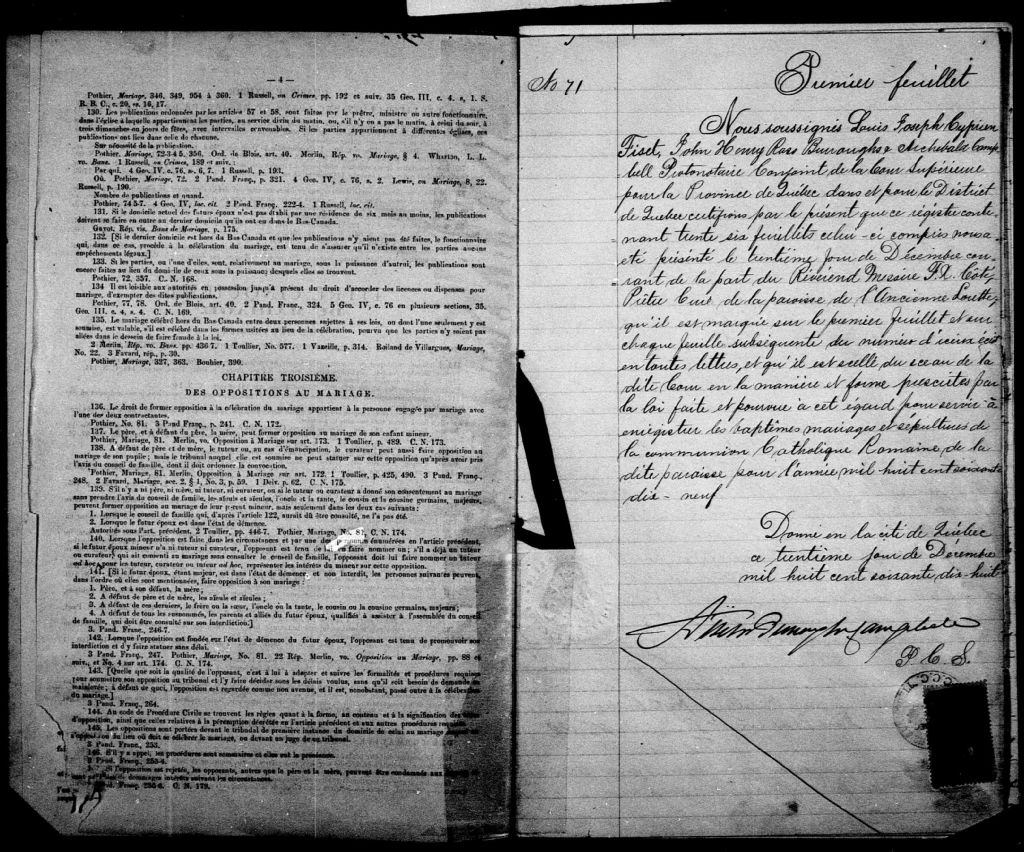 — 4 —
Pothier, Mariage, 346, 349, 954 à 360. 1 Russell, on Crimes, pp. 192 et suiv. 35 Geo. III, c. 4. s, 1. S.
R. B. C., c. 20, ss. 16, 17.
130. Les publications ordonnées par les articles 57 et 58, sont faites par le prêtre, ministre ou autre fonctionnaire,
dans l'église à laquelle appartiennent les parties, au service divin du matin, ou, s'il n'y en a pas le matin, à celui du soir, à
trois dimanches ou jours de fêtes, avec intervalles convenables. Si les parties appartiennent à différentes églises, ces
publications ont lieu dans celle de chacune.
Sur nécessité de la publication.
Pothier, Mariage, 72-3-4 5, 356. Ord. de Blois, art. 40. Merlin, Rép. vo. Mariage, § 4. Wharton, L. L.
vo. Bans. 1 Russell, on Crimes, 189 et suiv. :
Par qui. 4 Geo. IV, c. 76, s. 6, 7. 1 Russell, p. 193.
Où. Pothier, Mariage, 72. 2 Pand. Franç., p. 321. 4 Geo. IV, c. 76, s. 2. Lewis, on Mariage, 8, 22.
Russell, p. 190.
Nombre de publications et quand.
Pothier, 74 5-7. 4 Geo. IV, loc. cit. 2 Pand. Franç., 222-4. 1 Russell, loc. cit.
131. Si le domicile actuel des futurs époux n'est pas établi par une résidence de six mois au moins, les publications
doivent se faire en outre au dernier domicile qu'ils ont eu dans le Bas Canada.
Guyot, Rép. vis. Bans de Mariage, p. 175.
132. [Si le dernier domicile est hors du Bas Canada et que les publications n'y aient pas été faites, le fonctionnaire
qui, dans ce cas, procède à la célébration du mariage, est tenu de s'assurer qu'il n'existe entre les parties aucuns
empêchements légaux.]
133. Si les parties, ou l'une d'elles, sont, relativement au mariage, sous la puissance d'autrui, les publications sont
encore faites au lieu du domicile de ceux sous la puissance desquels elles se trouvent.
Pothier, 72, 357. C. N. 168.
134 Il est loisible aux autorités en possession jusqu'à présent du droit d'accorder des licences ou dispenses pour
mariage, d'exempter des dites publications.
Pothier, 77, 78. Ord. de Blois, art. 40. 2 Pand. Franç., 324. 5 Geo. IV, c. 76 en plusieurs sections, 35.
Geo. III, c. 4, s. 4. C. N. 169.
135. Le mariage célébré hors du Bas Canada entre deux personnes sujettes à ses lois, ou dont l'une seulement y est
soumise, est valable, s'il est célébré dans les formes usitées au lieu de la célébration, pourvu que les parties n'y soient pas
allées dans le dessein de faire fraude à la loi.
2 Merlin, Rép. vo. Bans. pp. 436-7. 1 Toullier, No. 577. 1 Vazeille, p. 314. Rolland de Villargues, Mariage,
No. 22. 3 Favard, rép., p. 30.
Pothier, Mariage, 327, 363. Bouhier, 390.
CHAPITRE TROISIÈME.
DES OPPOSITIONS AU MARIAGE.
136. Le droit de former opposition à la célébration du mariage appartient à la personne engagée par mariage avec
l'une des deux contractantes.
Pothier, No. 81. 3 Pand Franç., p. 241. C. N. 172.
137. Le père, et à défaut du père, la mère, peut former opposition au mariage de son enfant mineur.
Pothier, Mariage, 81. Merlin, vo. Opposition à Mariage sur art. 173. 1 Toullier, p. 489. C. N. 173.
138. A défaut de père et de mère, le tuteur ou, au cas d'émancipation, le curateur peut aussi faire opposition au
mariage de son pupile ; mais le tribunal auquel elle est soumise ne peut statuer sur cette opposition qu'après avoir pris
l'avis du conseil de famille, dont il doit ordonner la convocation.
Pothier, Mariage, 81. Merlin, Opposition à Mariage sur art. 172. 1 Toullier, p. 425, 490. 3 Pand. Franç.,
248. 2 Favard, Mariage, sec. 2, § 1, No. 3, p. 59. 1 Delv. p. 62. C. N. 175.
139. S'il n'y a ni père, ni mère, ni tuteur, ni curateur, ou si le tuteur ou curateur a donné son consentement au mariage
sans prendre l'avis du conseil de famille, les aïeuls et aïeules, l'oncle et la tante, le cousin et la cousine germains, majeurs,
peuvent former opposition au mariage de leur parent mineur, mais seulement dans les deux cas suivants :
1. Lorsque le conseil de famille qui, d'après l'article 122, aurait dû être consulté, ne l'a pas été.
2. Lorsque le futur époux est dans l'état de démence.
Autorités sous l'art. précédent. 2 Toullier, pp. 446-7. Pothier Mariage, No. 81, C. N. 174.
140. Lorsque l'opposition est faite, dans les circonstances et par une des personnes énumérées en l'article précédent,
si le futur époux mineur n'a ni tuteur ni curateur, l'opposant est tenu de lui en faire nommer un ; s'il a déjà un tuteur
ou curateur, qui ait consenti au mariage sans consulter le conseil de famille, l'opposant doit lui faire nommer un tuteur
ad hoc, pour les tuteur, curateur ou tuteur ad hoc, représenter les intérêts du mineur sur cette opposition.
141. [Si le futur époux, étant majeur, est dans l'état de démence, et non interdit, les personnes suivantes peuvent,
dans l'ordre où elles sont mentionnées, faire opposition à son mariage :
1. Père, et à son défaut, la mère ;
2. A défaut de père et de mère, les aïeuls et aïeules ;
3. A défaut de ces derniers, le frère ou la sœur, l'oncle ou la tante, le cousin ou la cousine germains, majeurs ;
4. A défaut de tous les susnommés, les parents et alliés du futur époux, qualifiés à assister à l'assemblée du conseil
de famille, qui doit être consulté sur son interdiction.]
3. Pand. Franç., 246-7.
142. Lorsque l'opposition est fondée sur l'état de démence du futur époux, l'opposant est tenu de promouvoir son
interdiction et d'y faire statuer sans délai.
3 Pand. Franç., 247. Pothier, Mariage, No. 81. 22 Rép. Merlin, vo. Opposition au Mariage, pp. 88 et
suiv., et No. 4 sur art. 174. C. N. 174.
143. [Quelle que soit la qualité de l'opposant, c'est à lui à adopter et suivre les formalités et procédures requises
pour soumettre son opposition au tribunal et l'y faire décider dans les délais voulus, sans qu'il soit besoin de demande en
mainlevée ; à défaut de quoi, l'opposition est regardée comme non avenue, et il est, nonobstant, passé outre à la célébration
du mariage.]
3 Pand. Franç., 264.
144. Au code de Procédure Civile se trouvent les règles quant à la forme, au contenu et à la signification des actes
d'opposition, ainsi que celles relatives à la péremption décrétée en l'article précédent et aux autres procédures requises.
145. Les oppositions sont portées devant le tribunal de première instance du domicile de celui au mariage duquel on
s'oppose, ou du lieu où doit se célébrer le mariage, ou devant un juge de ce tribunal.
3 Pand. Franç., 253.
146. S'il y a appel, les procédures sont sommaires et elles ont la préséance.
3 Pand. Franç., 253-4.
Si l'opposition est rejetée, les opposants, autres que le père et la mère, peuvent être condamnés aux
dommages intérêts suivant les circonstances.
Pand. Franç., 255-6. C. N. 179.
No 71
Premier feuillet
Nous soussignés Louis Joseph Cyprien
Fiset, John Henry Ross Burroughs & Archibald Camp-
bell Protonotaire Conjoint de la Cour Supérieure
pour la Province de Québec dans et pour le District
de Québec certifions par le présent que ce régistre conte-
nant trente six feuillets celui-ci compris nous a
été présenté le trentième jour de Décembre cou-
rant de la part du Révérend Messire F.X. Coté
Prêtre Curé de la paroisse de l'Ancienne Lorette,
qu'il est marqué sur le premier feuillet et sur
chaque feuille subséquente du numéro d'iceux écrit
en toutes lettres, et qu'il est scellé du sceau de la
dite Cour en la manière et forme prescrites par
la loi faite et pourvue à cet égard pour servir à
enrégistrer les baptêmes mariages et sépultures de
la communion Catholique Romaine de la
dite paroisse pour l'année mil-huit cent soixante
dix-neuf
Donné en la cité de Québec
ce trentième jour de Décembre
mil huit cent soixante dix-huit
Fiset Burroughs Campbell
P. C. S.